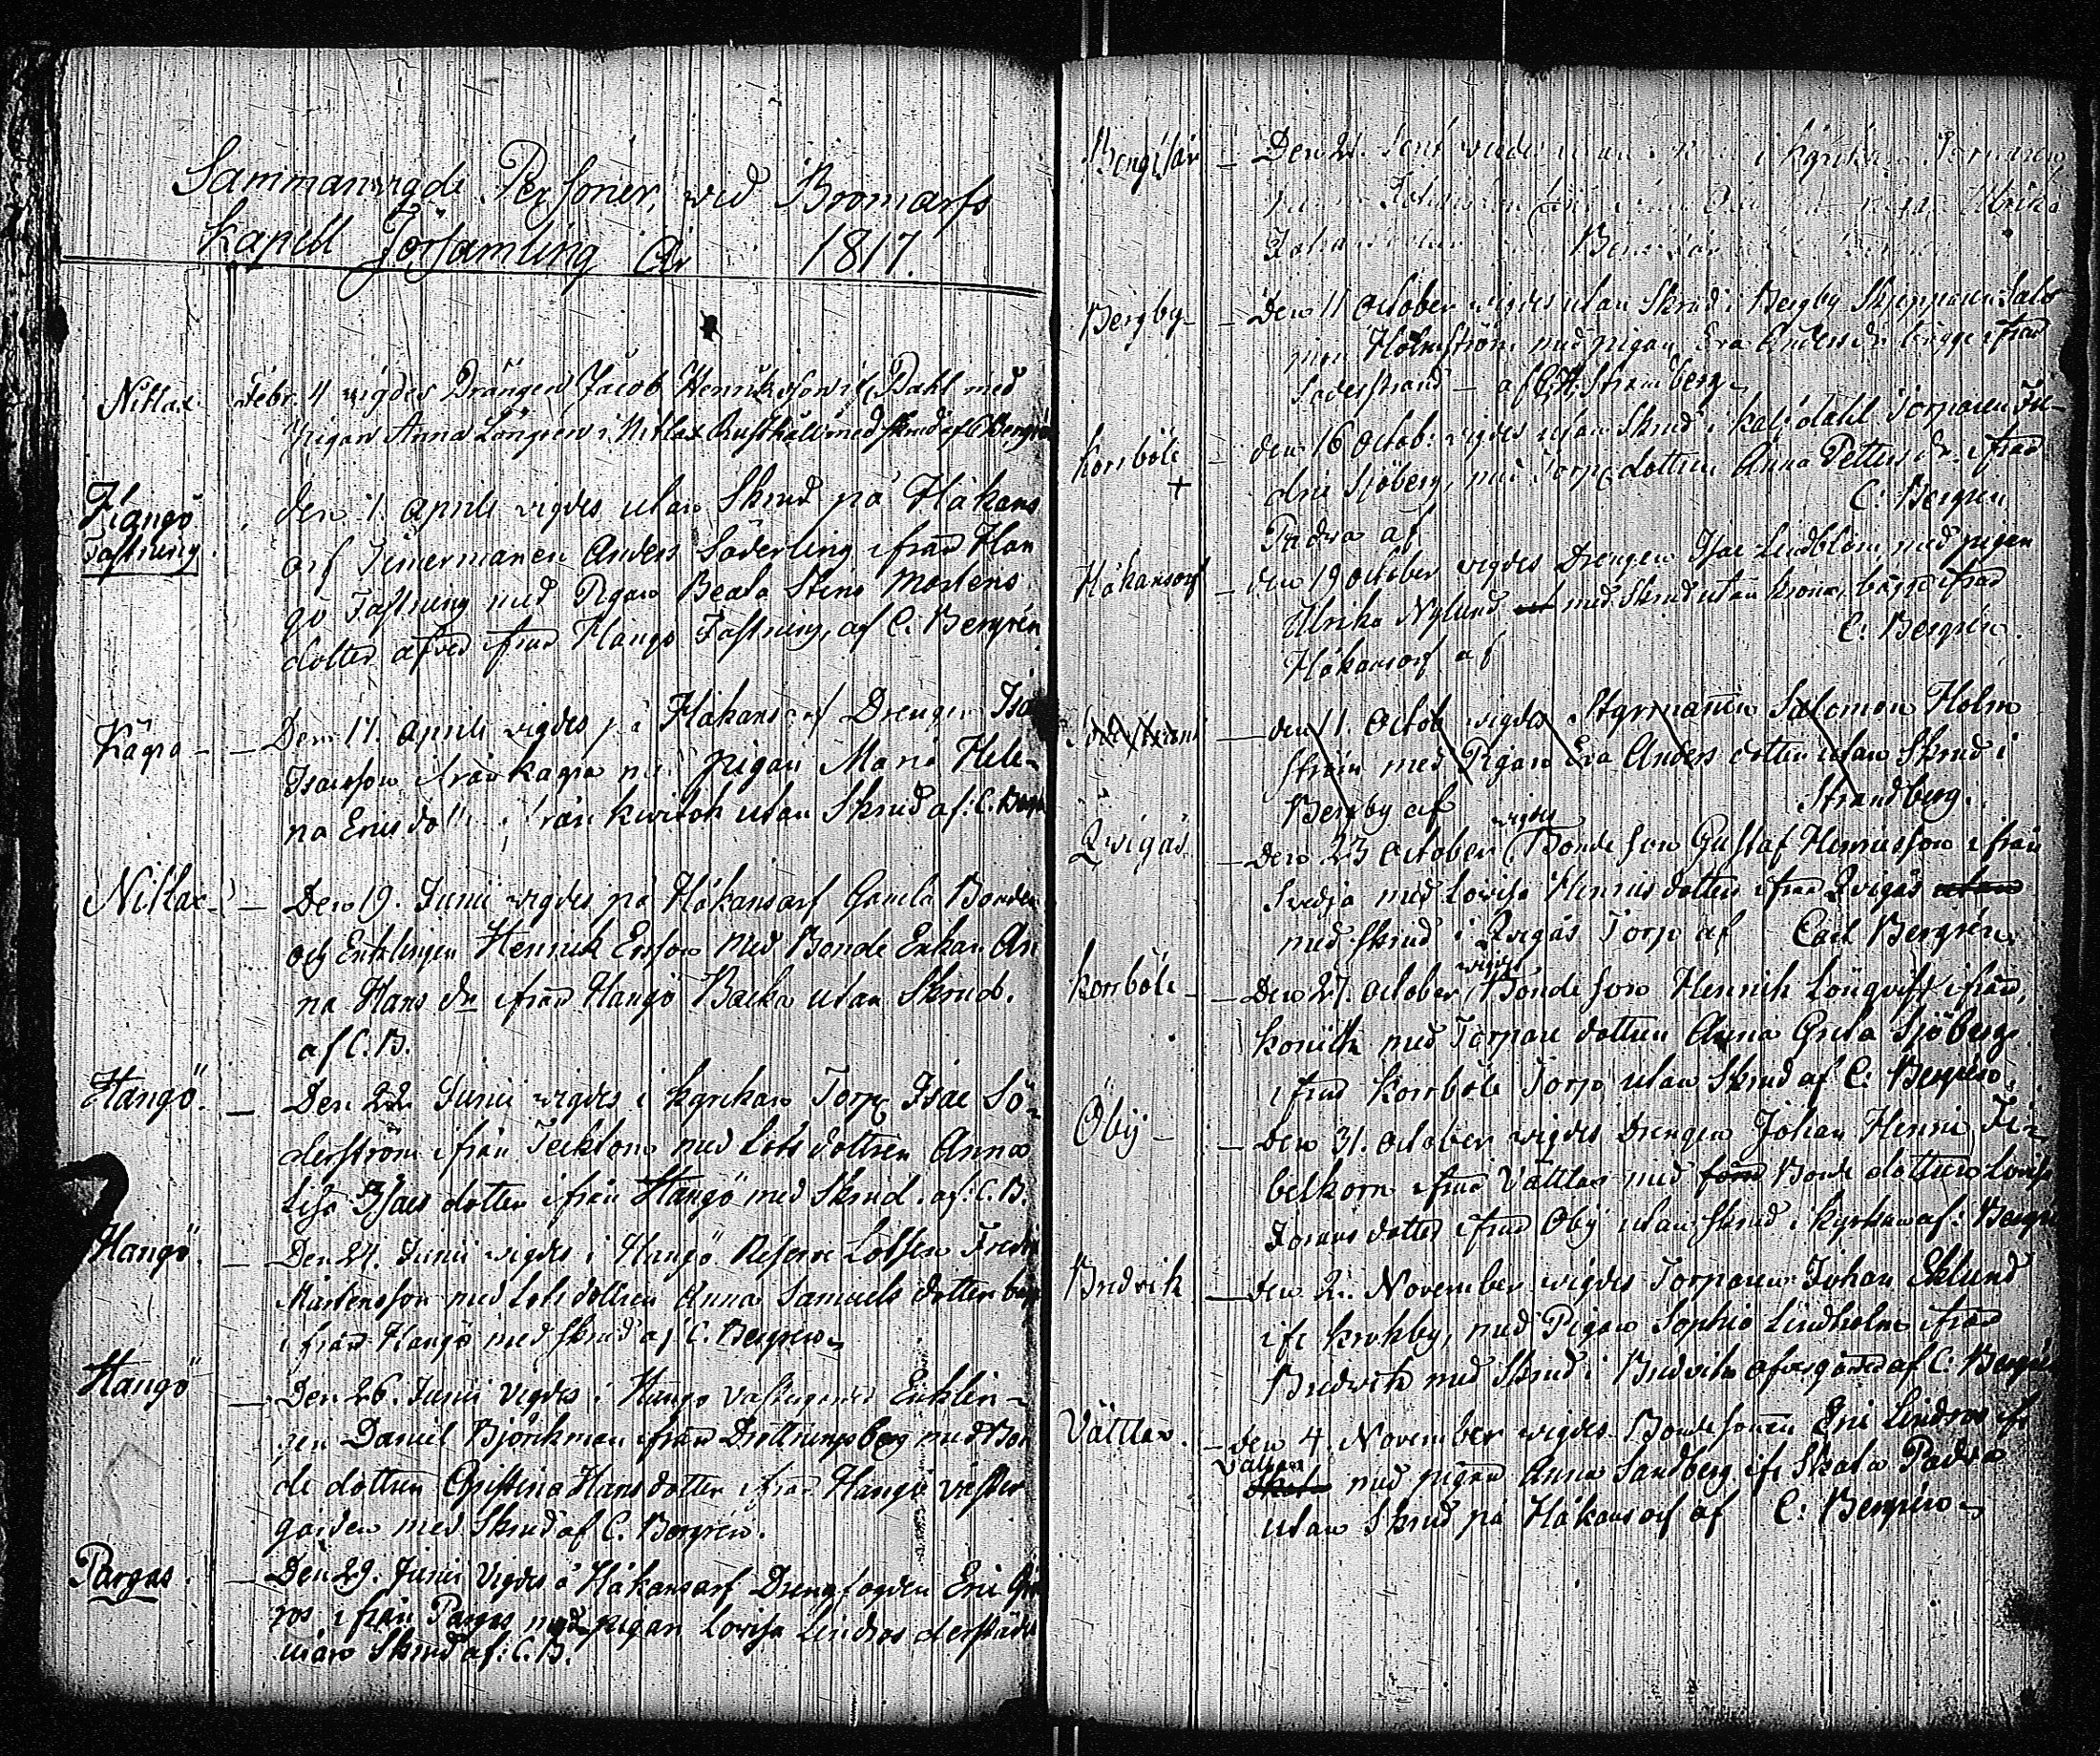 Sammanvigde Personer, wid Bromarfs
Kapell Församling År 1817.
Nitlax Febr. 4 vigdes Drängen Jacob Henriksson if. Dahl med
Pigan Anna Löngren i Nitlax Rusthåll med skrud af C Bergrén
Hangö
Fastning
den 7. Aprili vigdes utan Skrud på Håkans
arf Timermanen Anders Söderling ifrån Han
gö Fastning med Pigan Beata Stina Mortens
dotter ifrån Hangö Fastning, af C. Bergrén
Kagra - - Den 17. Aprili vigdes på Håkansarf Drengen Isac
Isacsson, ifrån Kagra med pigan Maria Hele-
na Ericsdotter ifrån utan Skrud af C. Bergr
Nitlax. - Den 19. Junii vigdes på Håkansarf Gamla Bonden
och Enklingen Henrik Ersson med Bonde Enkan An
na Hans dr ifrån Hangö Backa utan Skrud.
af C.B.
Hangö. - Den 22 Junii vigdes i Kyrkan Torp. Isac Sö-
derström ifrån Tecktom med Lots dottren Anna
Lisa Isacs dotter ifrån Hangö med Skrud. af: C.B.
Hangö. - Den 24. Junii vigdes i Hangö Reserve Lotsen Fredric
Mårtensson med Lots dottren Anna Samuels dotter bägge
ifrån Hangö med skrud af C. Bergren
Hangö - Den 26. Junii vigdes i Hangö Enklin-
gen Daniel Björkman ifrån Drottningsberg med Bon
de dottren Christina Hans dotter ifrån Hangö väster
gården med Skrud af C. Bergren.
Pargas. - Den 29. Junii Vigdes å Håkansarf Drengfogden Eric
ros ifrån Pargas med pigan Lovisa Lindros derstädes
utan Skrud af: C.B.
Bengtsår - Den 21. Sept utan i Kyrkan
Ulrica
Bergby - - Den 11 October vigdes utan Skrud i Bergby Skepparen Salo
mon Holmström med pigan Eva Anders dr bägge ifrån
Söderstrand - af Strandberg
Korrböle
+
- den 16 Octob: vigdes utan Skrud i Torparen Fre-
dric Sjöberg, med Torp. dottren Anna Petters dr ifrån
Padva af C: Bergren
Håkansarf - den 19 October vigdes Drengen Isac Lindblom med pigan
Ulrika Nylund med Skrud utan krona, bägge ifrån
Håkansarf af C: Bergrén.
Söderstrand - den 11. Octob vigdes Styrmannen Salomon Holm
ström med Pigan Eva Anders dotter utan Skrud i
Bergby af Strandberg.
Qvigås - Den 23 October vigdes Bonde son Gustaf Henricsson ifrån
Svedja med Lovisa Henrics dotter ifrån Qvigås utan
med skrud i Qvigås Torp af Carl Bergrén
Korrböle - - Den 27. October, vigdes Bonde son Henrik Lönqvist ifrån,
med Torpare dottren Anna Greta Sjöberg
ifrån Korrböle Torp utan Skrud af C: Bergren.
Öby - - Den 31. October vigdes Drengen Johan Henric
belkorn ifrån Vättlax med Bonde dottren Lovisa
Jörans dotter ifrån Öby utan skrud i Kyrkan af: Bergren
Bredvik - Den 2. November vigdes Torparen Johan Eklund
ifr Krokby, med Pigan Sophia Lindholm ifrån
Bredvik med Skrud i Bredvik af C: Bergrén
Vättlax. - den 4. November vigdes Bonde sonen Eric Lindros ifr
med pigan Anna Sandberg ifr Skata Padva
utan Skrud på Håkansarf af C: Bergrén